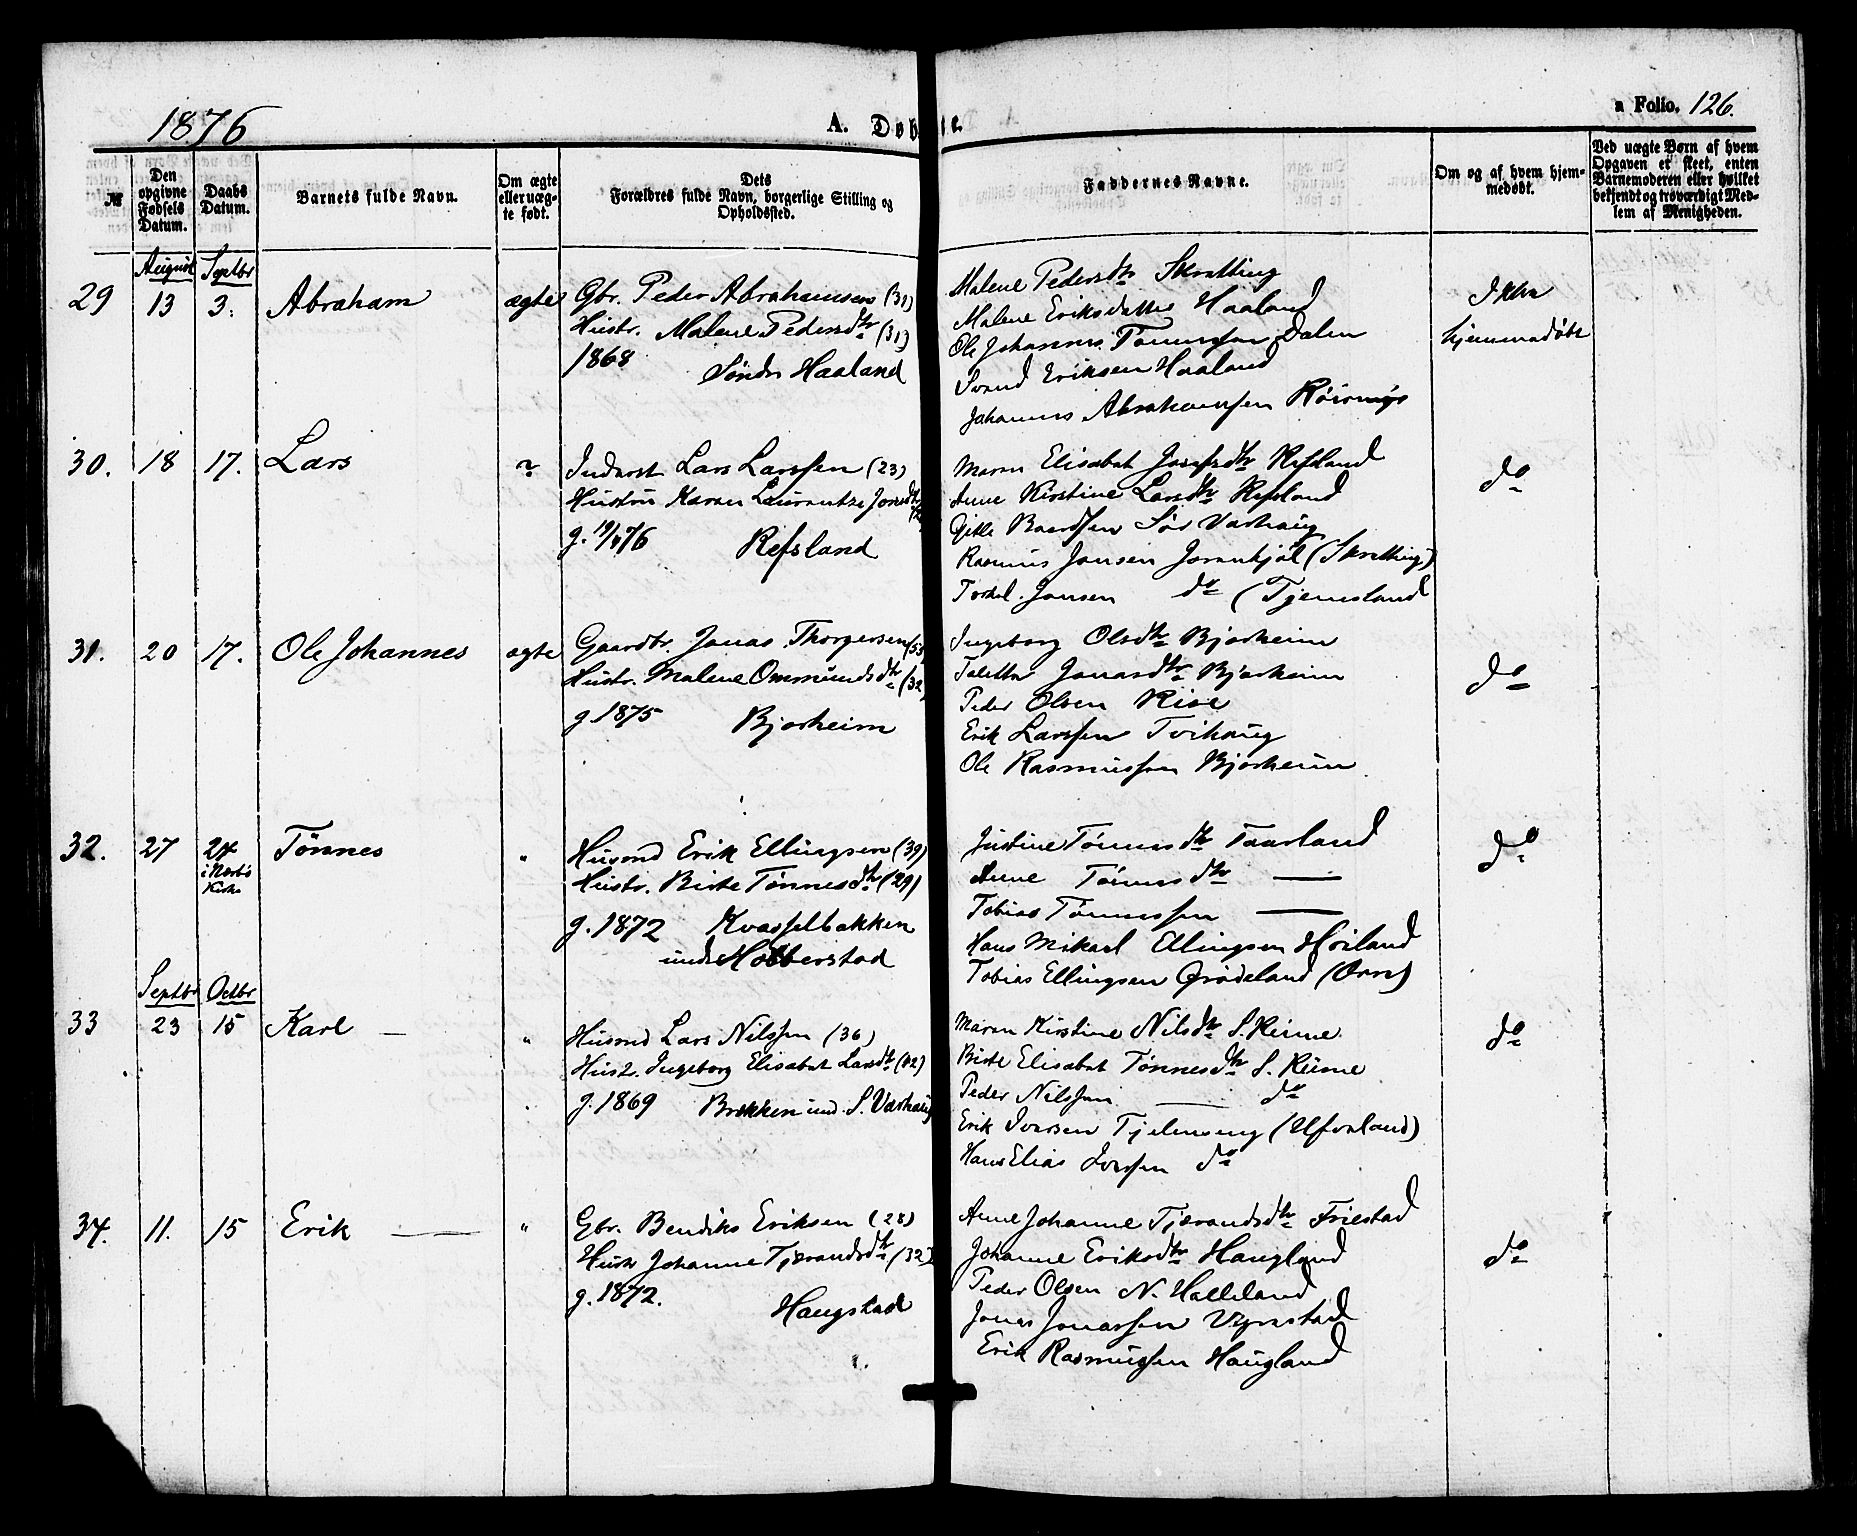 1876
A. Døbte.
a Folio. 126.
№
Den opgivne Fødsels Datum.
Daabs Datum.
Barnets fulde Navn.
Om ægte eller uægte født.
Dets Forældres fulde Navn, borgerlige Stilling og Opholdssted.
Faddernes Navne.
Om og af hvem hjemmedøbt.
Ved uægte Børn af hvem Opgaven er skeet, enten Barnemoderen eller hvilket bekjendt og troværdigt Medlem af Menigheden.
August Septbr
29 13 3. Abraham ægte
Gbr. Peder Abrahamsen (31)
Hustr. Malene Pedersdtr (31)
1868 Søndr Haaland
Malene Pedersdtr Skratting
Malene Eriksdatter Haaland
Ole Johannes Tønnessen Dalen
Svend Eriksen Haaland
Johannes Abrahamssen
Ikke hjemmedøbt
30. 18 17. Lars ?
Inderst Lars Larssen (23)
Hustru Karen Laurentze
g. 19/4 76 Refsland
Maren Elisabet Josefsdtr Refsland
Anne Kirstine Larsdtr Refsland
Gitle Baardsen Sør Varhaug
Rasmus Jansen (Skretting)
Torkel Jansen do (Tjemsland
do
31. 20 17. Ole Johannes ægte
Gaardbr. Jonas Thorgersen (53
Hustr. Malene Ommundsdtr (32
g. 1875 Bjorheim
Ingeborg Olsdtr Bjorheim
Taletta Jonasdtr Bjorheim
Peder Olsen
Erik Larssen Tvihaug
Ole Rasmussen Bjorheim
do
32. 27 24 i Nærbø Kirke Tønnes "
Husmd Erik Ellingsen (39)
Hustr. Birte Tønnesdtr (29)
g. 1872 Kvasselbakken
under Hobberstad
Justine Tønnesdtr Taarland
Anne Tønnesdtr —
Tobias Tønnessen —
Hans Mikael Ellingsen Høiland
Tobias Ellingsen Grødeland (Orre)
do
Septbr Octbr
33 23 15 Karl — "
Husmd Lars Nilssen (36)
Hustr. Ingeborg Elisabet Larsdtr (42)
g. 1869 Brekken und. S. Varhaug
Maren Kirstine Nilsdtr S. Reime
Birte Elisabet Tønnesdtr S. Reime
Peder Nilssen — do
Erik Ivarsen Tjelmeng (Ulfvaland)
Hans Elias do
do
34. 11. 15 Erik — "
Gbr. Bendiks Eriksen (28)
Hustr Johanne Tjærandsdtr (32)
g. 1872. Haugstad
Anne Johanne Tjærandsdtr Friestad
Johanne Eriksdtr Haugland
Peder Olsen N. Halleland
Jonas Jonassen Vigrestad
Erik Rasmussen Haugland
do